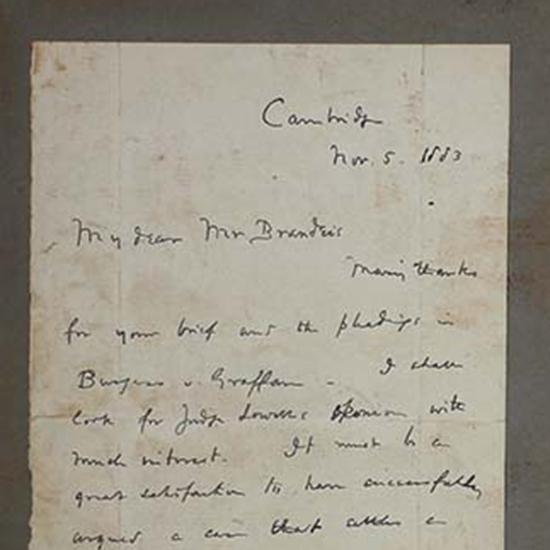 Cambridge
Nov. 5. 1883
My dear Mr Brandeis
Many thanks
for your brief and the pleadings in
Burgess v. Graffam - I shall
look for Judge Lowell's opinion with
much interest. It must be a
great satisfaction to have successfully
argued a case that settles a